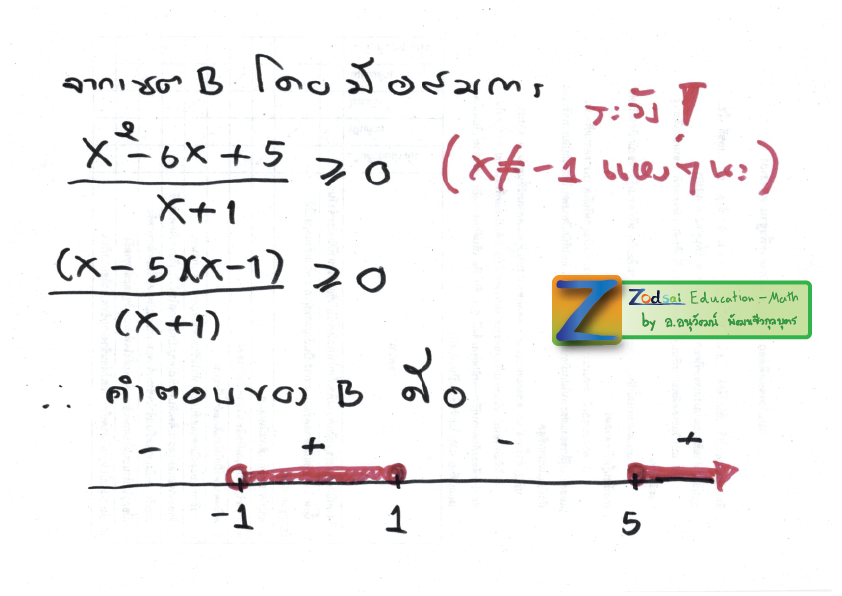 จากเซต B โดยมีอสมการ
x² - 6x + 5
x + 1
≥ 0
ระวัง!
(x ≠ -1 แหงๆ นะ)
(x - 5)(x - 1)
(x + 1)
≥ 0
Zodsai Education - Math
by อ.อนุวัฒน์ พัฒนชีวกุลบุตร
∴ คำตอบของ B คือ
- + - +
-1 1 5